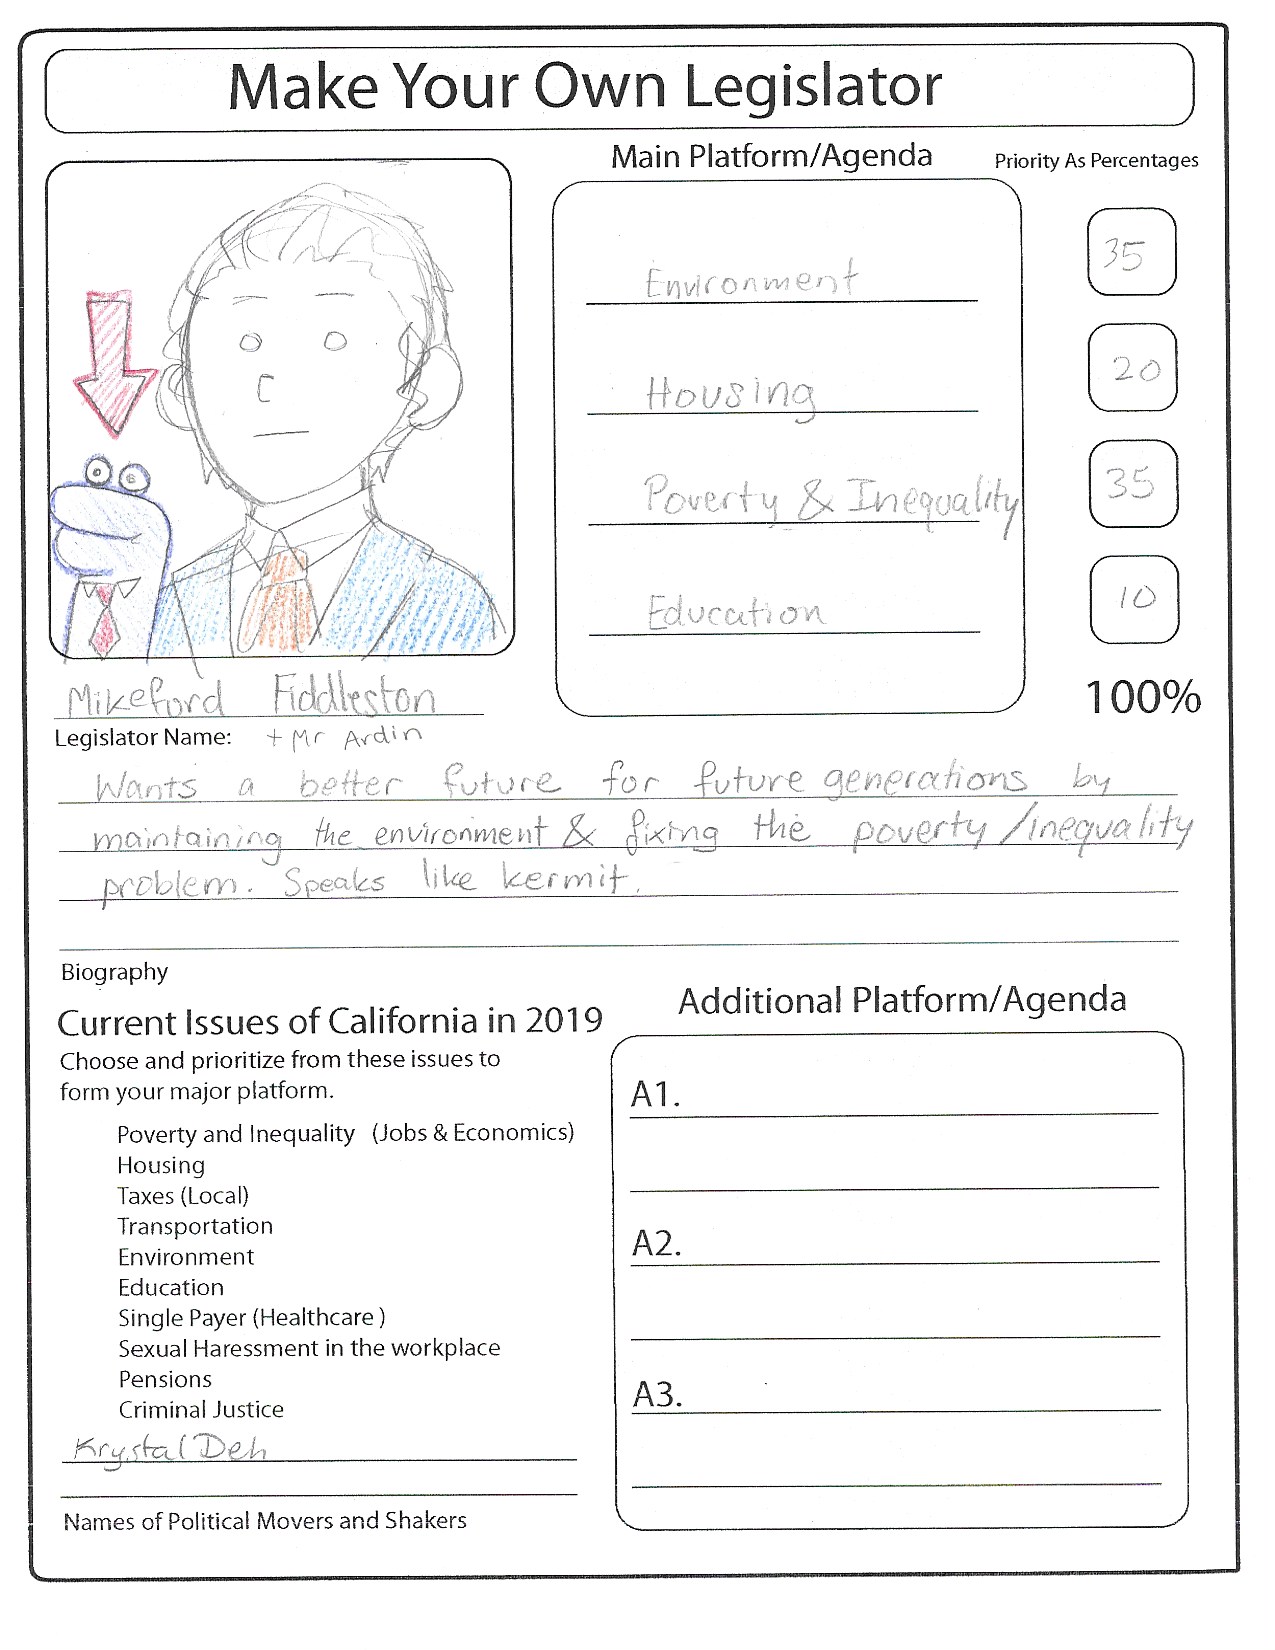 Make Your Own Legislator
Main Platform/Agenda
Priority As Percentages
Environment
35
Housing
20
Poverty & Inequality
35
Education
10
100%
Mikeford Fiddleston
Legislator Name: + Mr Ardin
Wants a better future for future generations by
maintaining the environment & fixing the poverty/inequality
problem. Speaks like kermit.
Biography
Current Issues of California in 2019
Choose and prioritize from these issues to
form your major platform.
Poverty and Inequality (Jobs & Economics)
Housing
Taxes (Local)
Transportation
Environment
Education
Single Payer (Healthcare )
Sexual Haressment in the workplace
Pensions
Criminal Justice
Krystal Deh
Names of Political Movers and Shakers
Additional Platform/Agenda
A1.
A2.
A3.